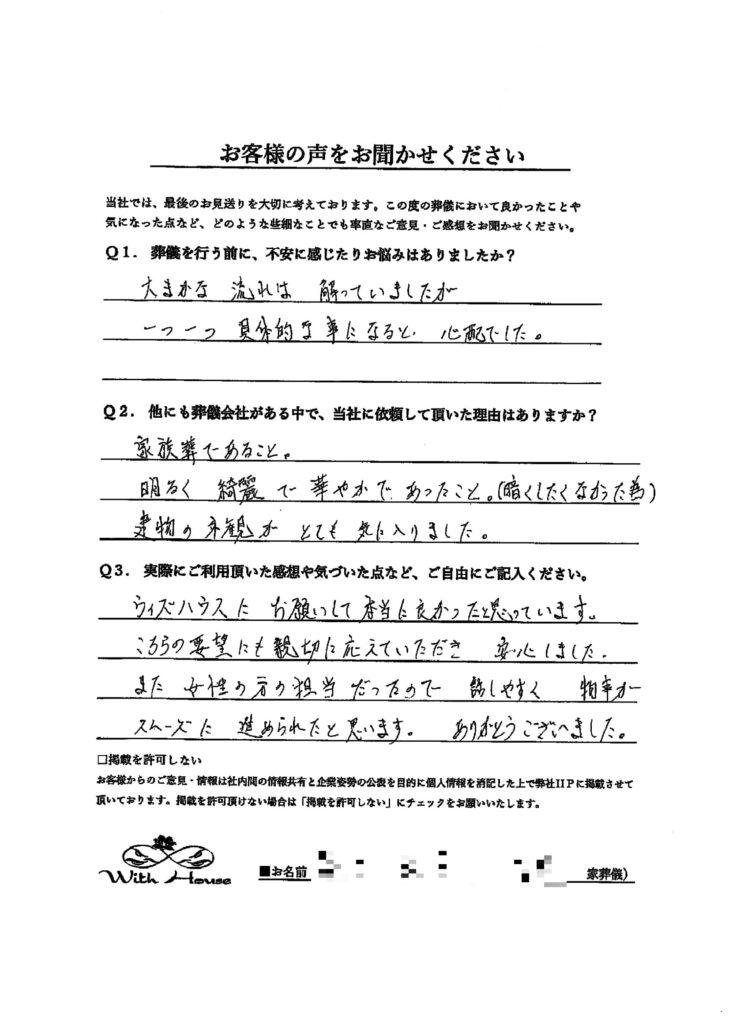 お客様の声をお聞かせください
当社では、最後のお見送りを大切に考えております。この度の葬儀において良かったことや
気になった点など、どのような些細なことでも率直なご意見・ご感想をお聞かせください。
Q1. 葬儀を行う前に、不安に感じたりお悩みはありましたか?
大まかな 流れは 解っていましたが
一つ一つ 具体的な事になると、心配でした。
Q2. 他にも葬儀会社がある中で、当社に依頼して頂いた理由はありますか?
家族葬であること。
明るく 綺麗で 華やかで あったこと。(暗くしたくなかった為)
建物の外観が とても 気に入りました。
Q3. 実際にご利用頂いた感想や気づいた点など、ご自由にご記入ください。
ウィズハウスに お願いして 本当に良かったと思っています。
こちらの要望にも親切に応えていただき 安心しました。
また 女性の方の担当だったので 話しやすく 物事が
スムーズに 進められたと思います。 ありがとうございました。
□掲載を許可しない
お客様からのご意見・情報は社内間の情報共有と企業姿勢の公表を目的に個人情報を消記した上で弊社HPに掲載させて
頂いております。掲載を許可頂けない場合は「掲載を許可しない」にチェックをお願いいたします。
With House
■お名前 家葬儀)